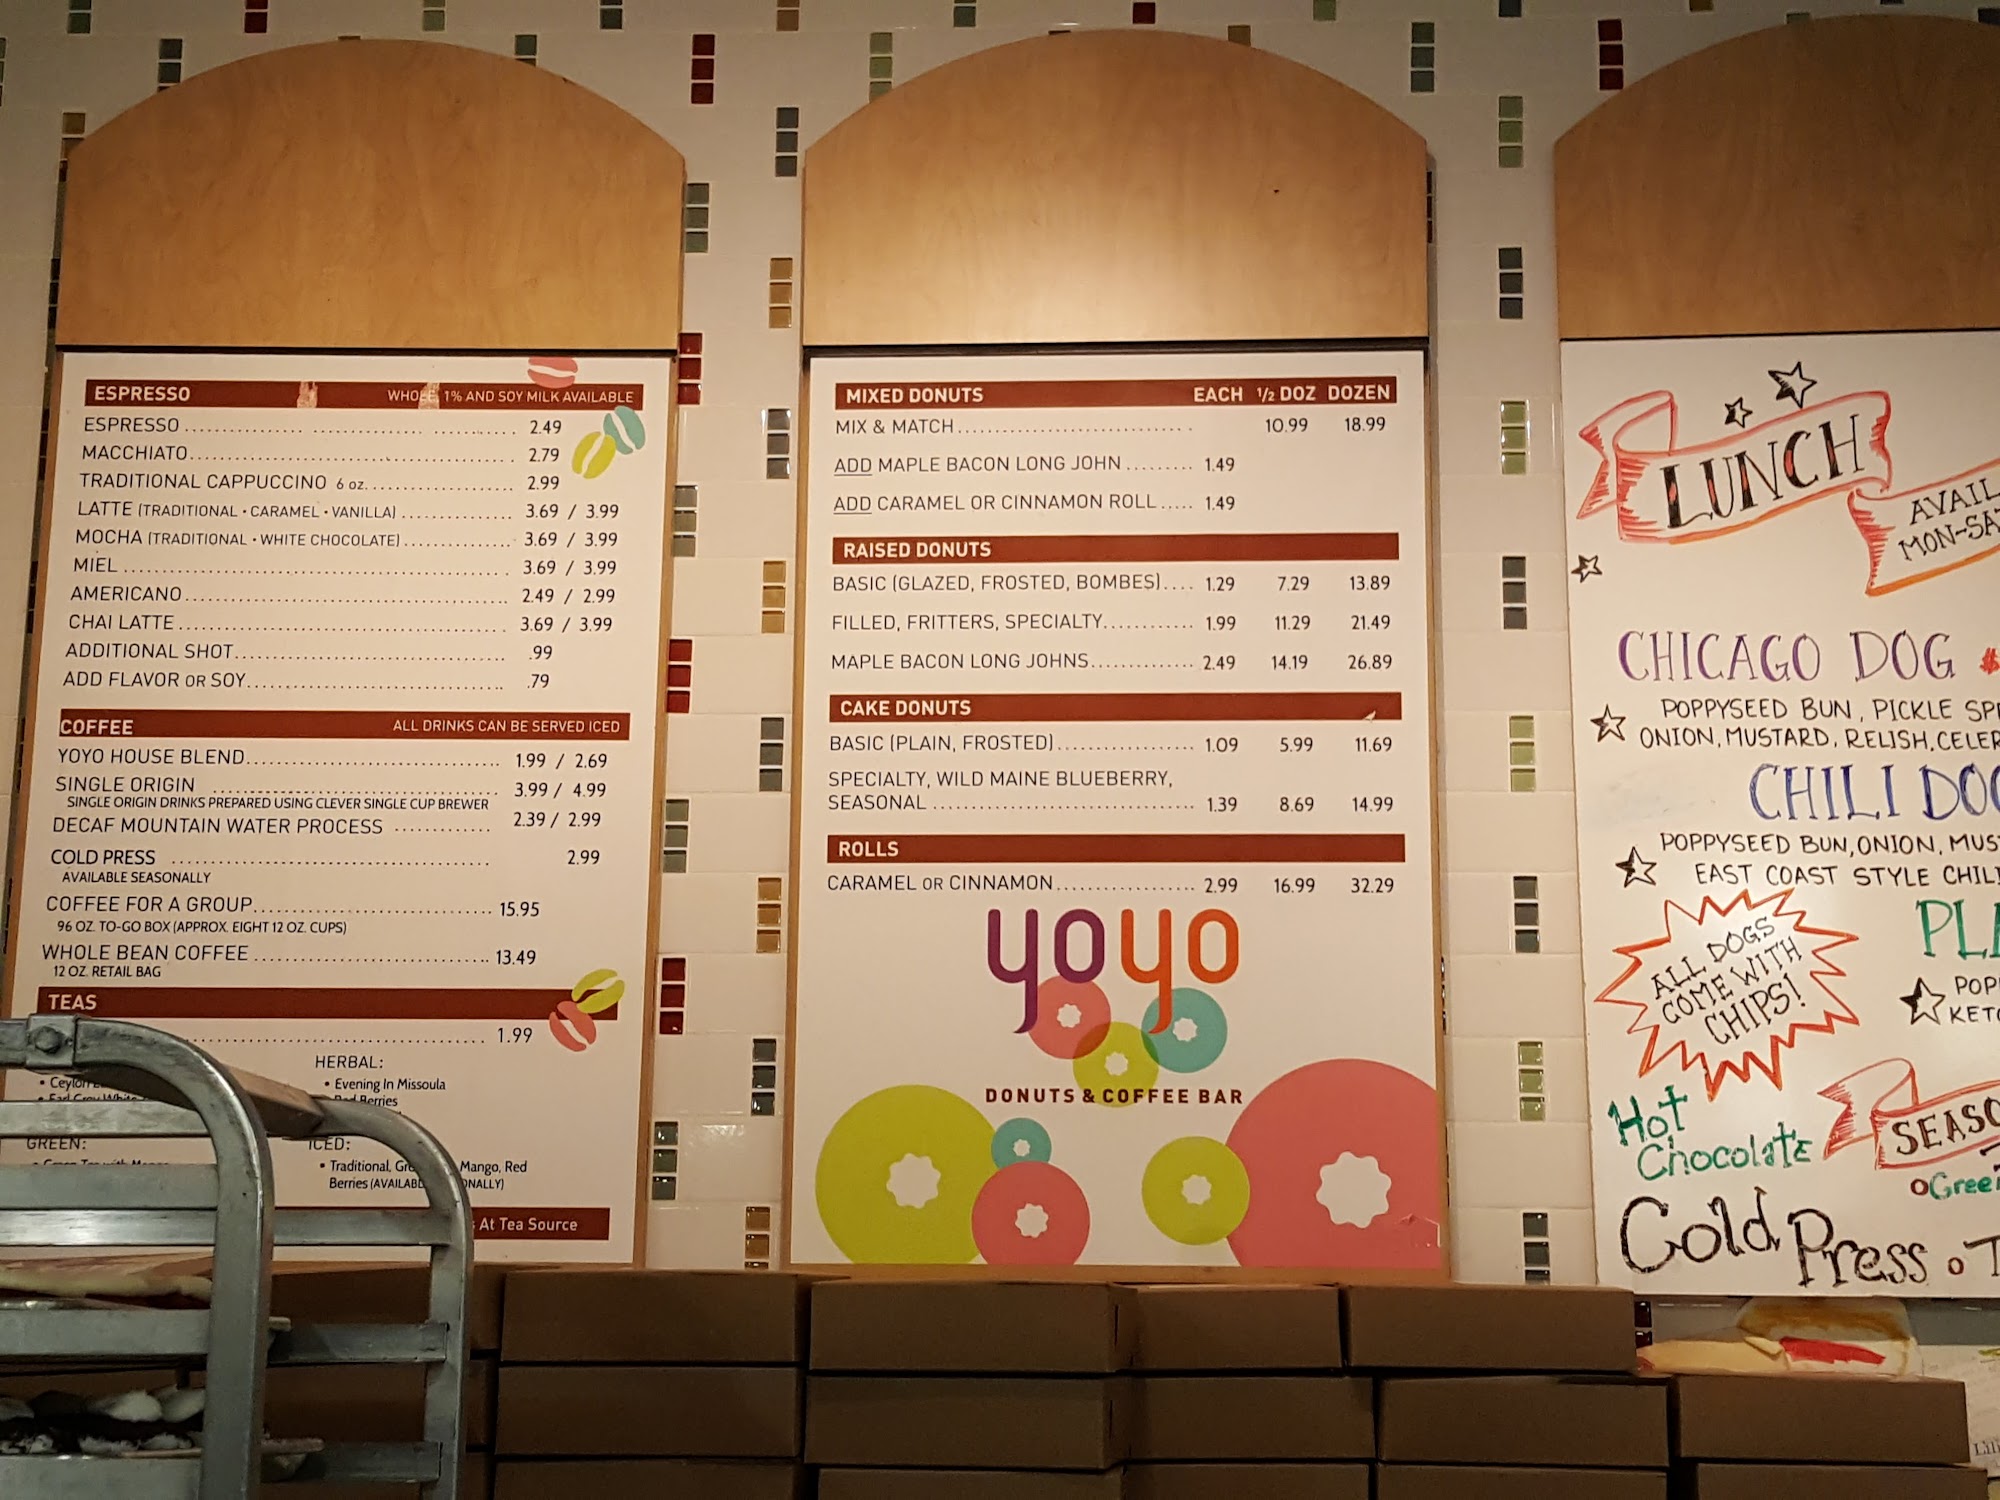 ESPRESSO WHOLE, 1% AND SOY MILK AVAILABLE
ESPRESSO 2.49
MACCHIATO 2.79
TRADITIONAL CAPPUCCINO 6 oz. 2.99
LATTE (TRADITIONAL • CARAMEL • VANILLA) 3.69 / 3.99
MOCHA (TRADITIONAL • WHITE CHOCOLATE) 3.69 / 3.99
MIEL 3.69 / 3.99
AMERICANO 2.49 / 2.99
CHAI LATTE 3.69 / 3.99
ADDITIONAL SHOT .99
ADD FLAVOR OR SOY .79
COFFEE ALL DRINKS CAN BE SERVED ICED
YOYO HOUSE BLEND 1.99 / 2.69
SINGLE ORIGIN 3.99 / 4.99
SINGLE ORIGIN DRINKS PREPARED USING CLEVER SINGLE CUP BREWER
DECAF MOUNTAIN WATER PROCESS 2.39 / 2.99
COLD PRESS 2.99
AVAILABLE SEASONALLY
COFFEE FOR A GROUP 15.95
96 OZ. TO-GO BOX (APPROX. EIGHT 12 OZ. CUPS)
WHOLE BEAN COFFEE 13.49
12 OZ. RETAIL BAG
TEAS
1.99
• Ceylon
• Earl Grey White
GREEN:
• Green Tea with Mango
HERBAL:
• Evening In Missoula
Red Berries
ICED:
• Traditional, Mango, Red
Berries
At Tea Source
MIXED DONUTS EACH 1/2 DOZ DOZEN
MIX & MATCH 10.99 18.99
ADD MAPLE BACON LONG JOHN 1.49
ADD CARAMEL OR CINNAMON ROLL 1.49
RAISED DONUTS
BASIC (GLAZED, FROSTED, BOMBES) 1.29 7.29 13.89
FILLED, FRITTERS, SPECIALTY 1.99 11.29 21.49
MAPLE BACON LONG JOHNS 2.49 14.19 26.89
CAKE DONUTS
BASIC (PLAIN, FROSTED) 1.09 5.99 11.69
SPECIALTY, WILD MAINE BLUEBERRY,
SEASONAL 1.39 8.69 14.99
ROLLS
CARAMEL OR CINNAMON 2.99 16.99 32.29
yoyo
DONUTS & COFFEE BAR
LUNCH
AVAIL
MON-SA
CHICAGO DOG $
POPPYSEED BUN, PICKLE SP
ONION, MUSTARD, RELISH, CELER
CHILI DO
POPPYSEED BUN, ONION, MUS
EAST COAST STYLE CHIL
ALL DOGS
COME WITH
CHIPS!
PL
POP
KETC
Hot
Chocolate
SEASO
Green
Cold Press